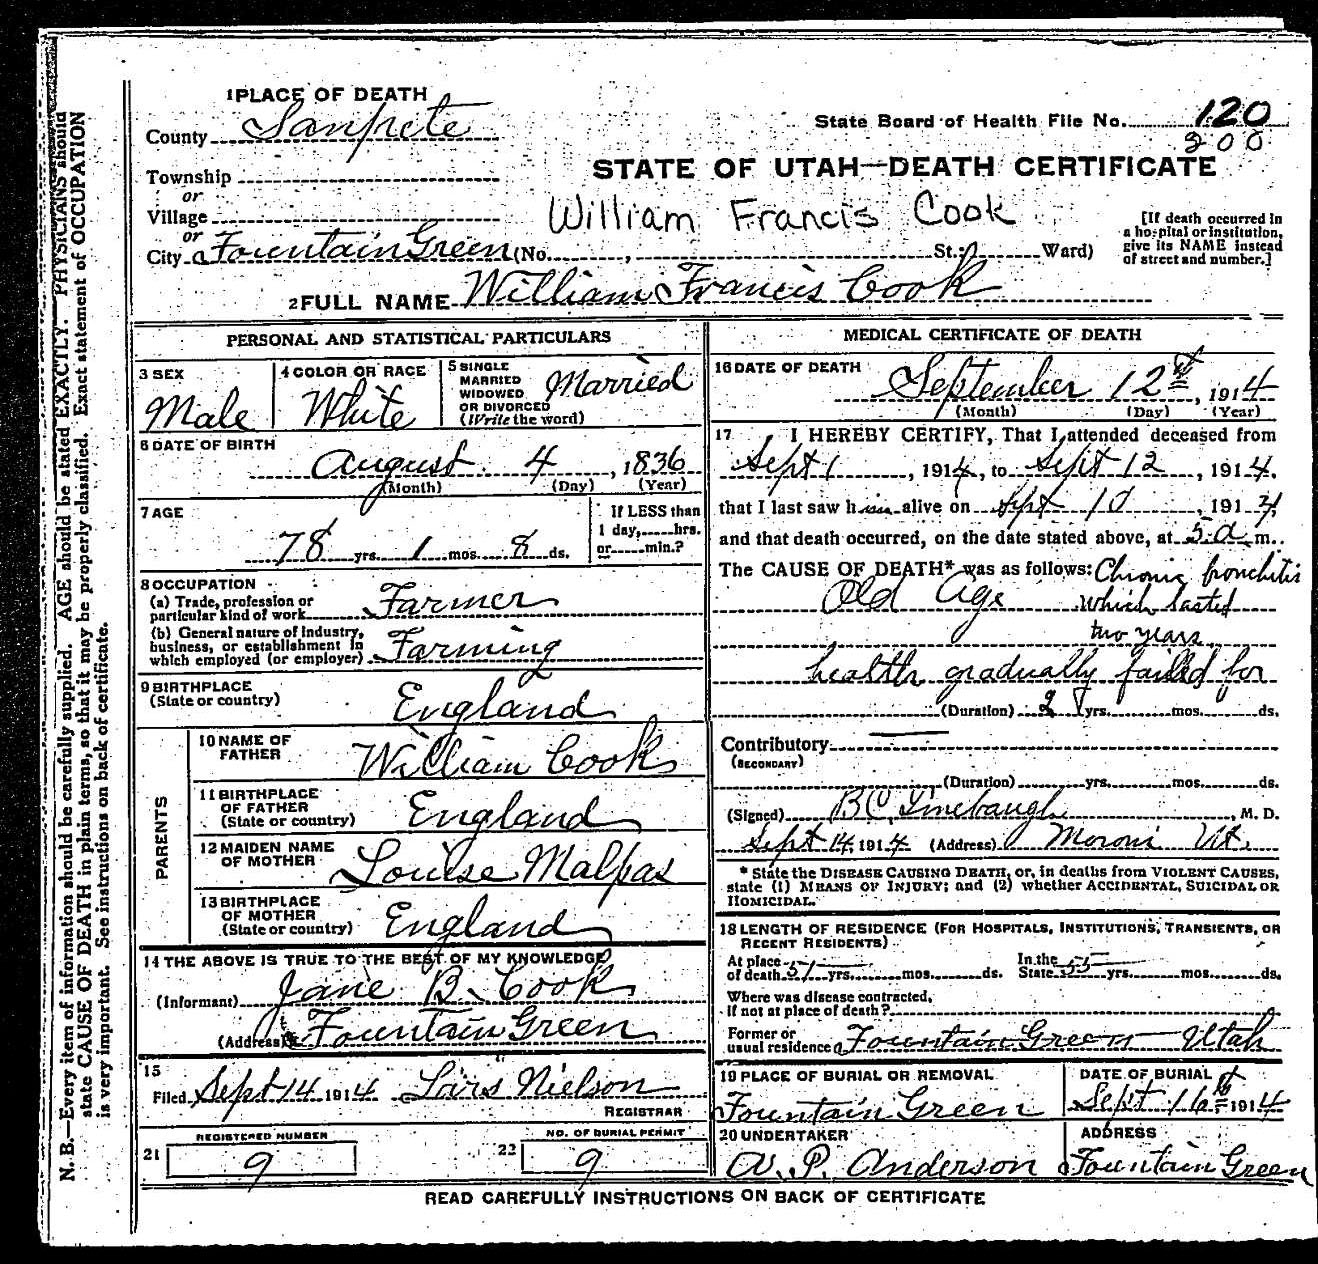 1 PLACE OF DEATH
County Sanpete
Township
or
Village
or
City Fountain Green (No. , St.; Ward)
State Board of Health File No. 120
200
STATE OF UTAH—DEATH CERTIFICATE
William Francis Cook
[If death occurred in
a hospital or institution,
give its NAME instead
of street and number.]
2 FULL NAME William Francis Cook
PERSONAL AND STATISTICAL PARTICULARS
3 SEX
Male
4 COLOR OR RACE
White
5 SINGLE
MARRIED
WIDOWED
OR DIVORCED
(Write the word)
Married
6 DATE OF BIRTH
August 4, 1836
(Month) (Day) (Year)
7 AGE
78 yrs. 1 mos. 8 ds.
If LESS than
1 day, hrs.
or min.?
8 OCCUPATION
(a) Trade, profession or
particular kind of work Farmer
(b) General nature of industry,
business, or establishment in
which employed (or employer) Farming
9 BIRTHPLACE
(State or country) England
PARENTS
10 NAME OF
FATHER William Cook
11 BIRTHPLACE
OF FATHER
(State or country) England
12 MAIDEN NAME
OF MOTHER Louise Malpas
13 BIRTHPLACE
OF MOTHER
(State or country) England
14 THE ABOVE IS TRUE TO THE BEST OF MY KNOWLEDGE
(Informant) Jane B. Cook
(Address) Fountain Green
15
Filed Sept 14 1914 Lars Nielson
REGISTRAR
REGISTERED NUMBER
21 9
NO. OF BURIAL PERMIT
22 9
MEDICAL CERTIFICATE OF DEATH
16 DATE OF DEATH
September 12th, 1914
(Month) (Day) (Year)
17 I HEREBY CERTIFY, That I attended deceased from
Sept 1, 1914, to Sept 12, 1914.
that I last saw him alive on Sept 10, 1914
and that death occurred, on the date stated above, at 5 a m.
The CAUSE OF DEATH* was as follows: Chronic bronchitis
Old Age which lasted
two years
health gradually failed for
(Duration) 2 yrs. mos. ds.
Contributory
(SECONDARY)
(Duration) yrs. mos. ds.
(Signed) B C Linebaugh, M. D.
Sept 14, 1914 (Address) Moroni Ut.
* State the DISEASE CAUSING DEATH, or, in deaths from VIOLENT CAUSES,
state (1) MEANS OF INJURY; and (2) whether ACCIDENTAL, SUICIDAL OR
HOMICIDAL.
18 LENGTH OF RESIDENCE (FOR HOSPITALS, INSTITUTIONS, TRANSIENTS, OR
RECENT RESIDENTS)
At place
of death 51 yrs. mos. ds.
In the
State 55 yrs. mos. ds.
Where was disease contracted,
if not at place of death?
Former or
usual residence Fountain Green Utah
19 PLACE OF BURIAL OR REMOVAL
Fountain Green
DATE OF BURIAL
Sept 16th 1914
20 UNDERTAKER
A. P. Anderson
ADDRESS
Fountain Green
READ CAREFULLY INSTRUCTIONS ON BACK OF CERTIFICATE
N. B.—Every item of information should be carefully supplied. AGE should be stated EXACTLY. PHYSICIANS should
state CAUSE OF DEATH in plain terms, so that it may be properly classified. Exact statement of OCCUPATION
is very important. See instructions on back of certificate.